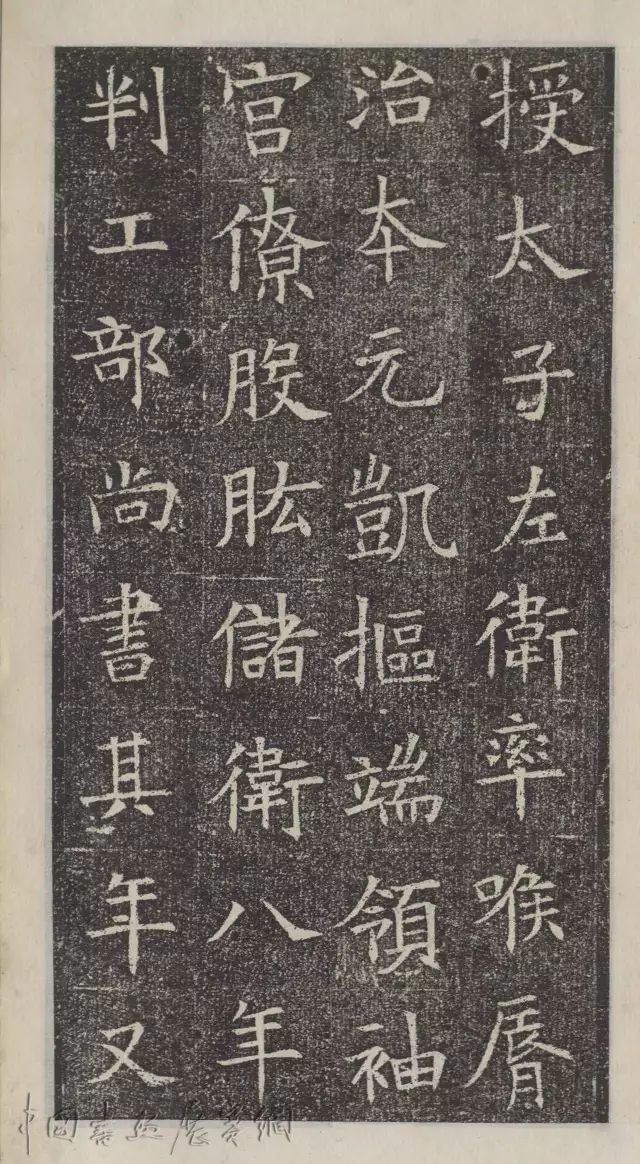 授太子左衛率喉脣
治本元凱摳端領袖
官僚股肱儲衛八年
判工部尚書其年又
中国書法展賽網